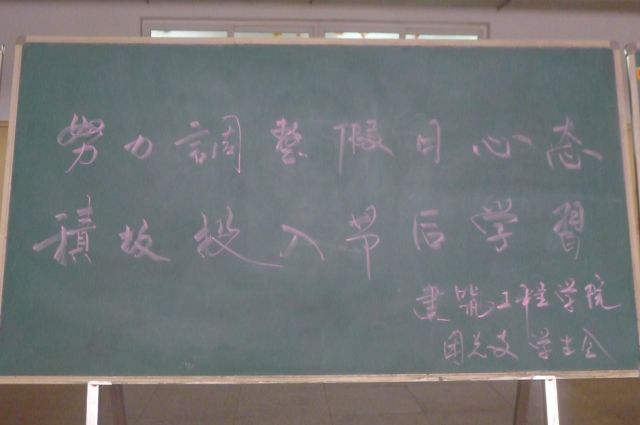 努力調整假日心态
積极投入节后学習
建筑工程学院
团总支 学生会